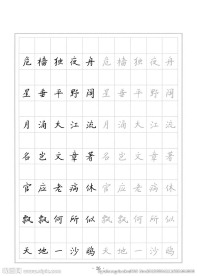 危樯独夜舟危樯独夜舟
星垂平野阔星垂平野阔
月涌大江流月涌大江流
名岂文章著名岂文章著
官应老病休官应老病休
飘飘何所似飘飘何所似
天地一沙鸥天地一沙鸥